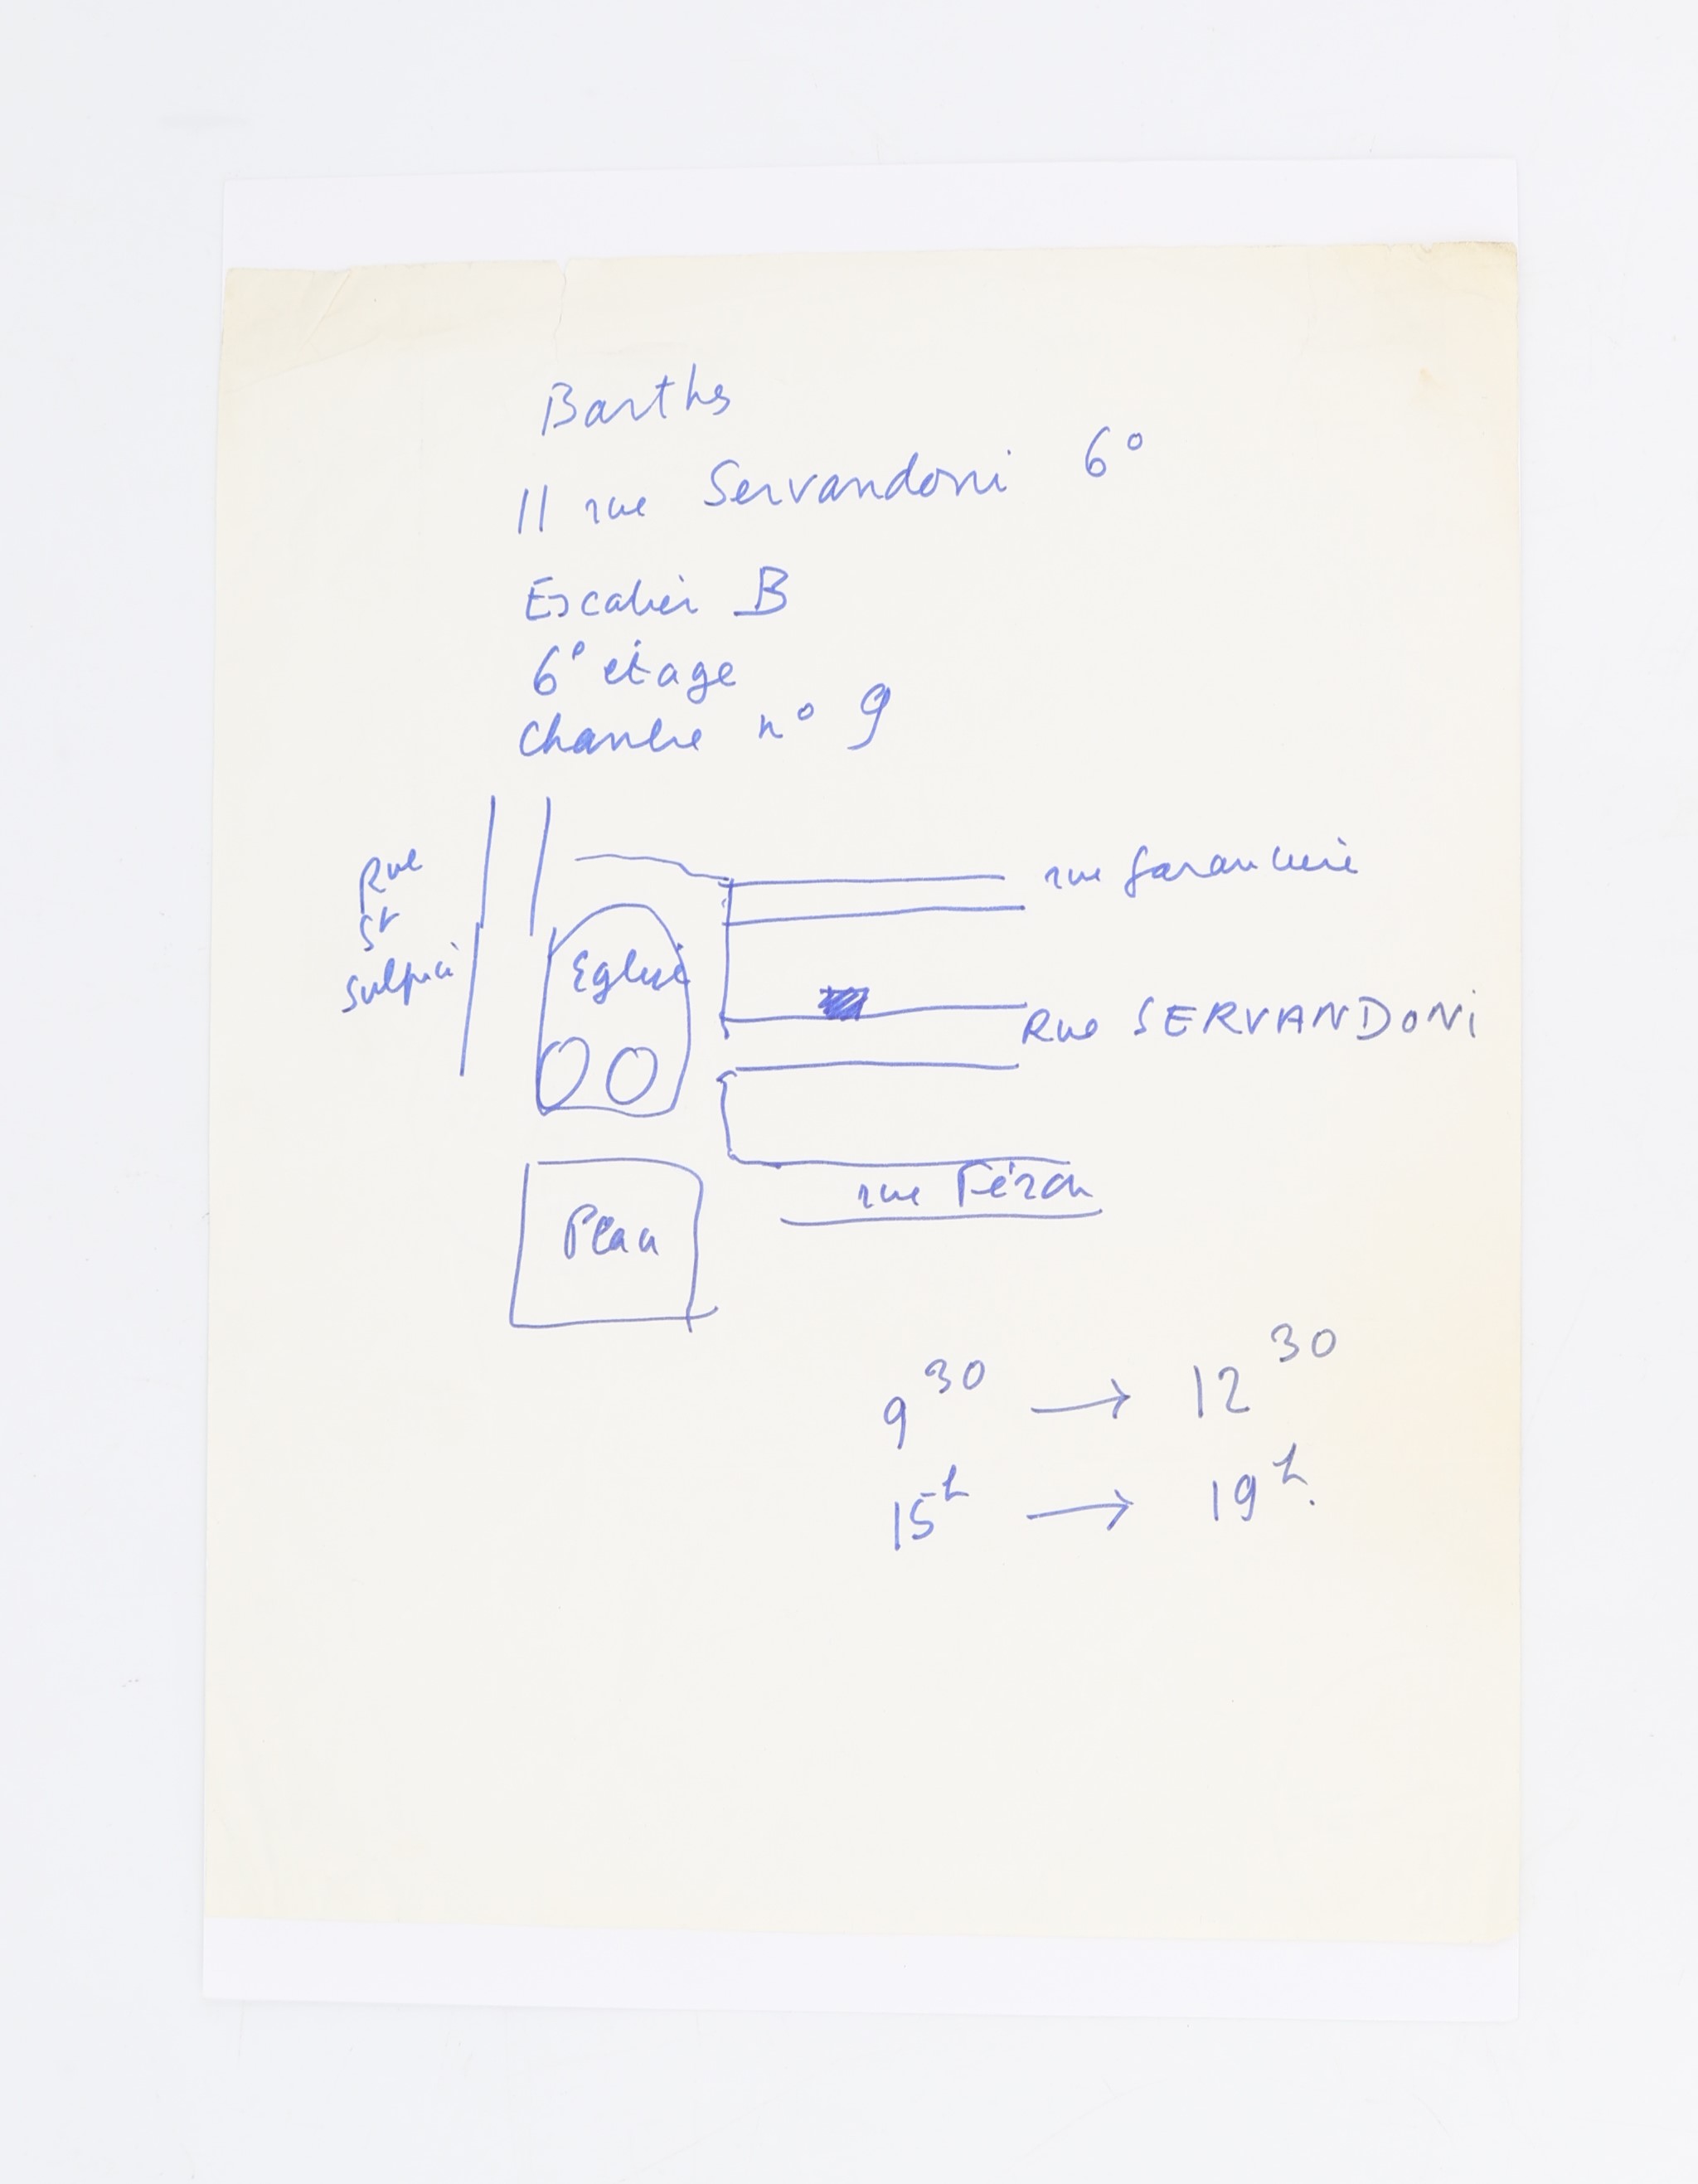 Barthes
11 rue Servandoni 6°
Escalier B
6° étage
Chambre n° 9
Rue
St
Sulpice
rue Garancière
Eglise
Rue SERVANDONi
rue Férou
Place
9 30 → 12 30
15h → 19h.